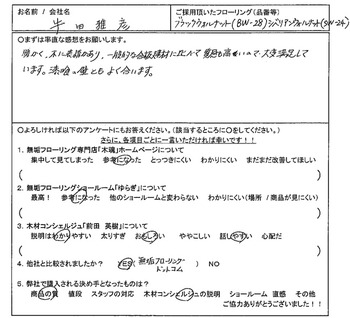 お名前 / 会社名
半田 雅彦
ご採用頂いたフローリング(品番等)
ブラックウォルナット(BW-28)
〇まずは率直な感想をお願いします。
暖かく、木に表情があり、一般的な合板建材に比べて質感も高いので大変満足して
います。漆喰の壁ともよく合います。
〇よろしければ以下のアンケートにもお答えください。(該当するところに〇をしてください。)
さらに、各項目ごとに一言いただければ幸いです!!
1. 無垢フローリング専門店「木魂」ホームページについて
集中して見てしまった 参考になった とっつきにくい わかりにくい まだまだ改善してほしい
( )
2. 無垢フローリングショールーム「ゆらぎ」について
最高! 参考になった 他のショールームと変わらない わかりにくい(場所 / 商品が見にくい)
( )
3. 木材コンシェルジュ「前田 英樹」について
説明はわかりやすい 太りすぎ おもしろい ややこしい 話しやすい 心配だ
( )
4. 他社と比較されましたか? YES(無垢フローリングドットコム) NO
5. 弊社で購入される決め手となったものは?
商品の質 値段 スタッフの対応 木材コンシェルジュの説明 ショールーム 直感 その他
ご協力ありがとうございました!